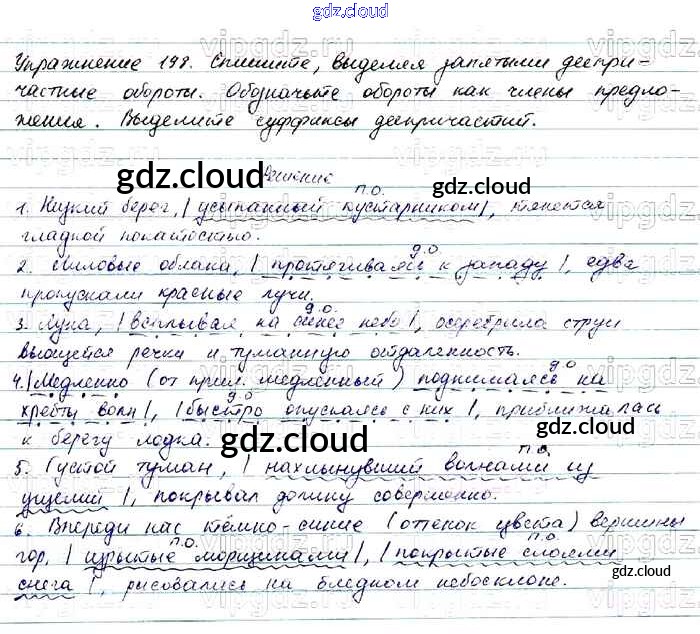 gdz.cloud
Упражнение 198. Спишите, выделяя запятыми деепри-
частные обороты. Обозначьте обороты как члены предло-
жения. Выделите суффиксы деепричастий.
gdz.cloud Решение
gdz.cloud
п.о.
1. Низкий берег, | усыпанный кустарником |, тянется
гладкой покатостью.
д.о
2. Лиловые облака, | протягиваясь к западу |, едва
пропускали красные лучи.
д.о.
3. Луна, | всплывая на синее небо |, осеребрила струи
вьющейся речки и туманную отдаленность.
д.о
4. | Медленно (от прил. медленный) поднимаясь на
д.о
хребты волн |, | быстро опускаясь с них |, приближалась
к берегу лодка.
gdz.cloud
gdz.cloud
п.о.
5. Густой туман, | нахлынувший волнами из
ущелий |, покрывал долину совершенно.
6. Впереди нас тёмно-синие (оттенок цвета) вершины
п.о. п.о.
гор, | изрытые морщинами |, | покрытые слоями
снега |, рисовались на бледном небосклоне.
gdz.cloud
gdz.cloud